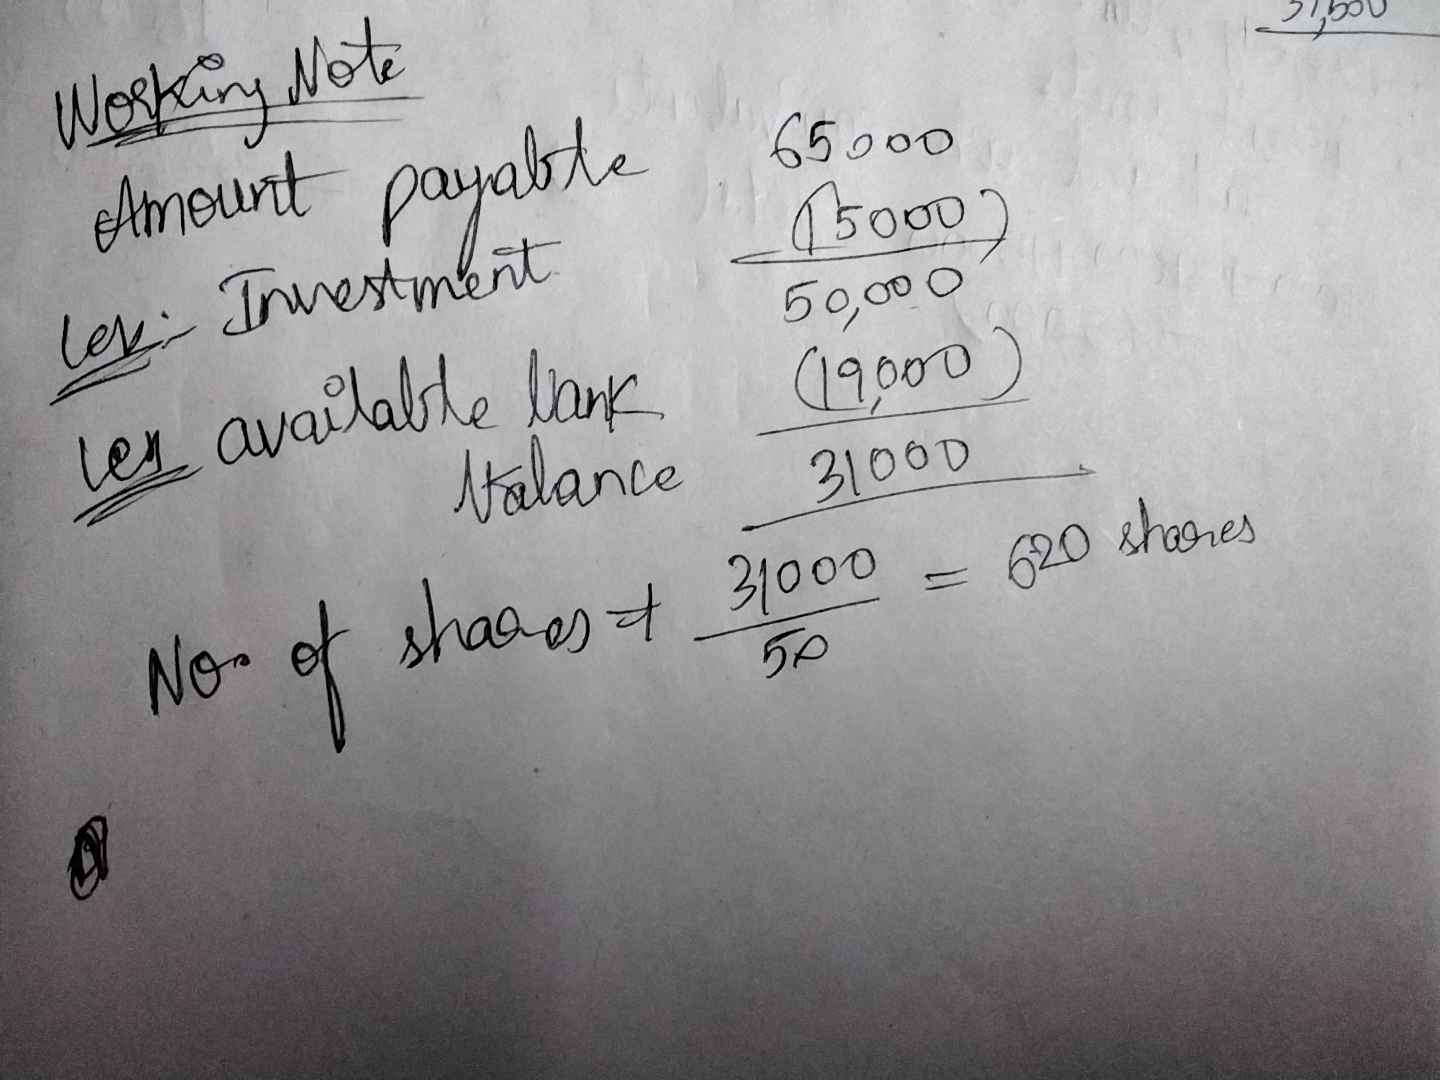 31,500
Working Note
Amount payable 65000
Less:- Investment (15000)
50,000
Less available bank (19,000)
balance 31000
No. of shares = 31000 / 50 = 620 shares